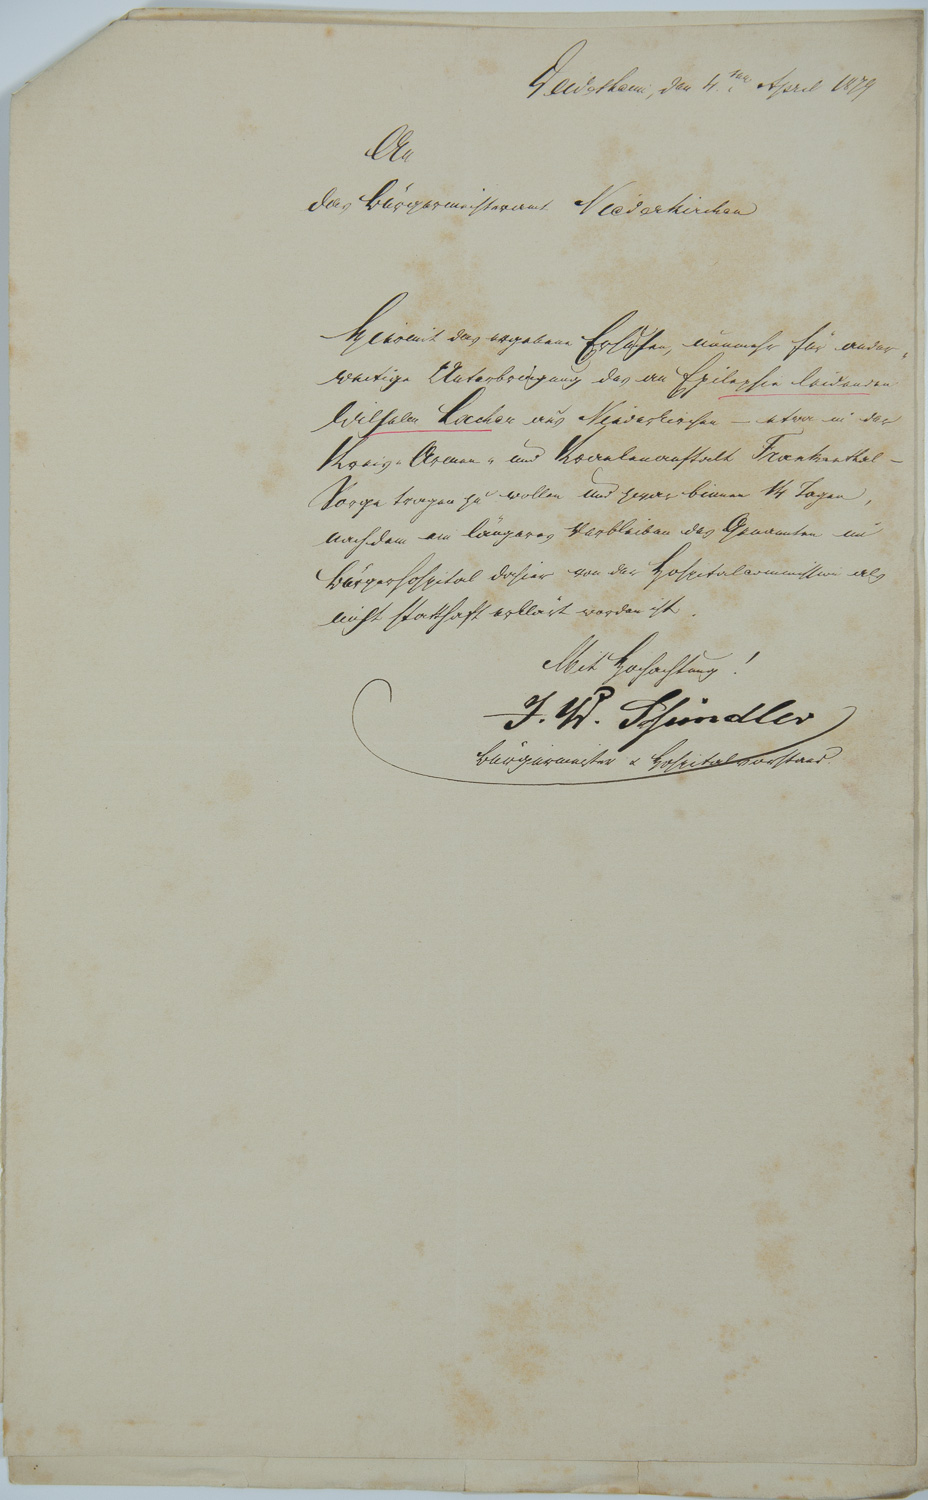 Deidesheim, den 4. ten April 1879
An
das Bürgermeisteramt Niederkirchen
Hiermit das ergebene Ersuchen, nunmehr für ander-
weitige Unterbringung des an Epilepsie leidenden
Wilhelm Locher aus Niederkirchen – etwa in der
Kreis-Armen- und Krankenanstalt Frankenthal –
Sorge tragen zu wollen und zwar binnen 14 Tagen,
nachdem ein längeres Verbleiben des Genannten im
Bürgerhospital dahier von der Hospitalcommission als
nicht statthaft erklärt worden ist.
Mit Hochachtung!
Schindler
Bürgermeister & Hospitalvorstand.